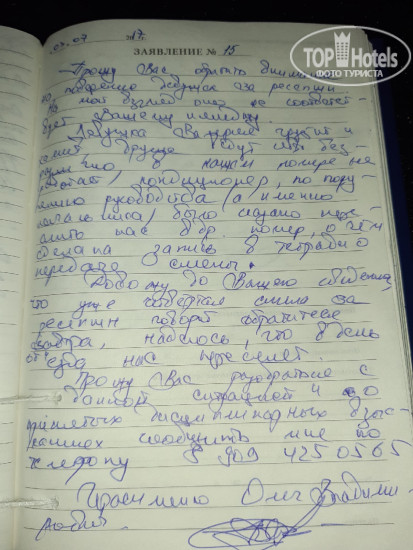 TOPHotels
ФОТО ТУРИСТА
07.07 17г.
ЗАЯВЛЕНИЕ № 15
Прошу Вас обратить внимание
на поведение девушек за ресепшн.
На мой взгляд оно не соответст-
вует Вашему имиджу.
Девушка Валерия грубит и
в нашем номере не
работает кондиционер, по пору-
чению руководства (а именно
начальника) было сказано пере-
селить нас в др. номер, о чём
сделана запись в тетрадию
передачи смены.
Довожу до Вашего сведения,
что уже четвертая смена за
ресепшн говорит обратитесь
завтра, надеюсь, что в день
отъезда нас переселят.
Прошу Вас разобраться с
данной ситуацией и о
принятых дисциплинарных взыс-
каниях сообщить мне по
телефону 8 909 4250565
Герасименко Олег Владими-
рович.